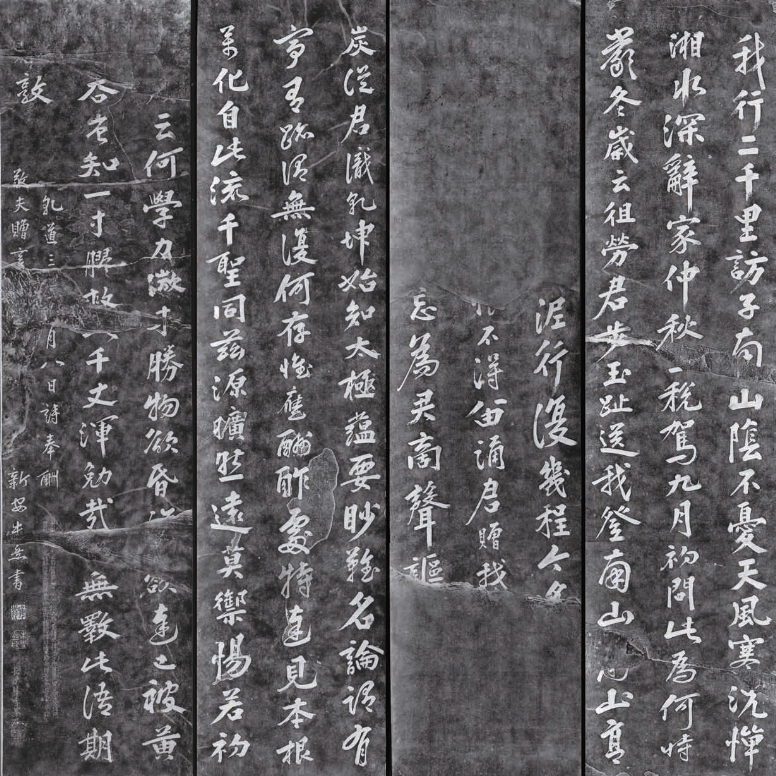 我行二千里訪子南山陰不憂天風寒況憚
湘水深辭家仲秋 稅駕九月初問此為何時
嚴冬歲云徂勞君步玉趾送我登南山 山高
泥行復幾程今夕
不得留誦君贈我
忘為君商聲謳
炭從君識乾坤始知太極蘊要眇難名論謂有
寧有跡謂無復何存惟應酬酢處特達見本根
萬化自此流千聖同茲源曠然遠莫禦惕若初
云何學力微 勝物欲昏 欲達已被黃
吞豈知一寸膠救 千丈渾勉哉 無斁此語期
敦
乾道三 月八日詩奉酬
敬夫贈言 新安朱熹書